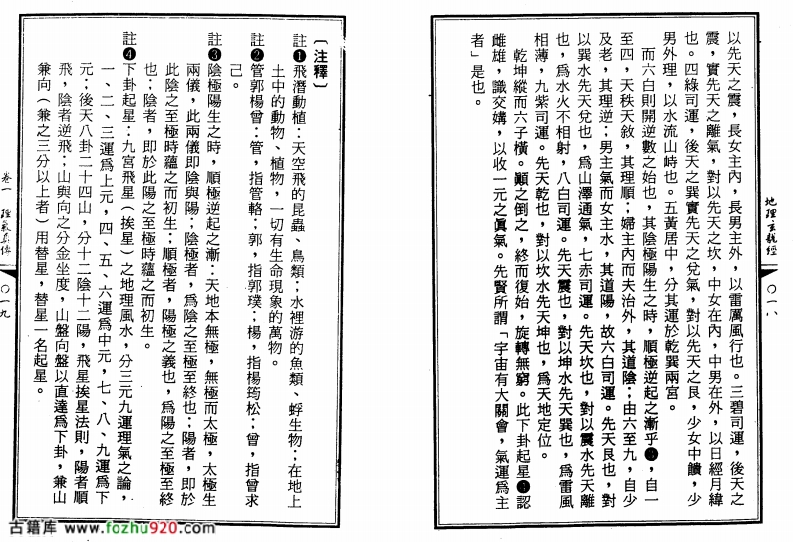 地理玄龍經
〇一八
以先天之震，長女主內，長男主外，以雷厲風行也。三碧司運，後天之
震，實先天之離氣，對以先天之坎，中女在內，中男在外，以日經月緯
也。四綠司運，後天之巽實先天之兌氣，對以先天之艮，少女中饋，少
男外理，以水流山峙也。五黃居中，分其運於乾巽兩宮。
而六白則開逆數之始也，其陰極陽生之時，順極逆起之漸乎❸，自一
至四，天秩天敘，其理順；婦主內而夫治外，其道陰；由六至九，自少
及老，其理逆；男主氣而女主水，其道陽，故六白司運。先天艮也，對
以巽水先天兌也，爲山澤通氣，七赤司運。先天坎也，對以震水先天離
也，爲水火不相射，八白司運。先天震也，對以坤水先天巽也，爲雷風
相薄，九紫司運。先天乾也，對以坎水先天坤也，爲天地定位。
乾坤縱而六子橫。顚之倒之，終而復始，旋轉無窮。此下卦起星❹認
雌雄，識交媾，以收一元之眞氣。先賢所謂「宇宙有大關會，氣運爲主
者」是也。
〔注釋〕
註❶飛潛動植：天空飛的昆蟲、鳥類；水裡游的魚類、蜉生物；在地上
土中的動物、植物，一切有生命現象的萬物。
註❷管郭楊曾：管，指管輅；郭，指郭璞；楊，指楊筠松；曾，指曾求
己。
註❸陰極陽生之時，順極逆起之漸：天地本無極，無極而太極，太極生
兩儀，此兩儀即陰與陽；陰極者，爲陰之至極至終也；陽者，即於
此陰之至極時蘊之而初生；順極者，陽極之義也，爲陽之至極至終
也；陰者，即於此陽之至極時蘊之而初生。
註❹下卦起星：九宮飛星（挨星）之地理風水，分三元九運理氣之論，
一、二、三運爲上元，四、五、六運爲中元，七、八、九運爲下
元；後天八卦二十四山，分十二陰十二陽，飛星挨星法則，陽者順
飛，陰者逆飛；山與向之分金坐度，山盤向盤以直達爲下卦，兼山
兼向（兼之三分以上者）用替星，替星一名起星。
卷一 理氣眞傳
〇一九
古籍库 www.fozhu920.com